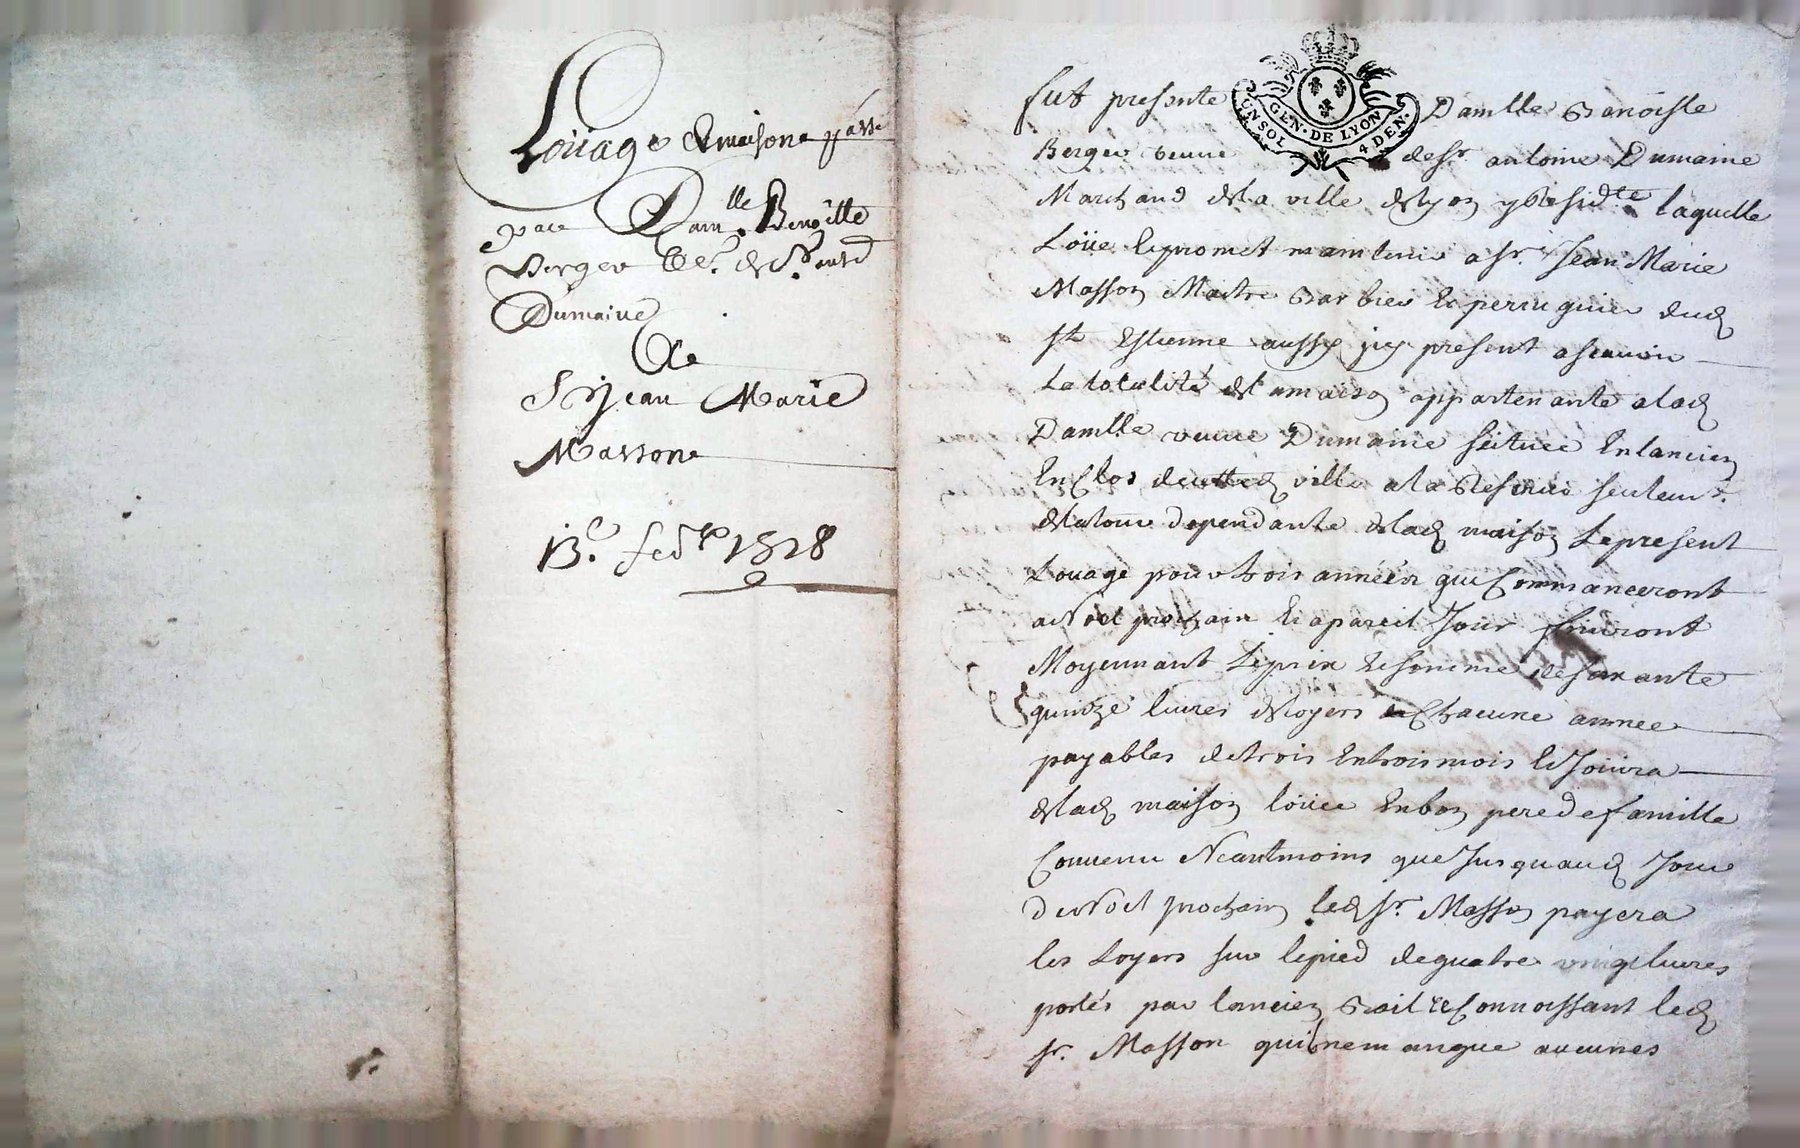 Loüage de maison passé
par Dam.lle Benoitte
Berger Ve. de Sr. ant
Dumaine
a
Sr. Jean Marie
Masson
13.e
fut presente Damlle Benoiste
GEN. DE LYON
UN SOL 4 DEN.
Berger veuve de Sr. antoine Dumaine
Marchand de la ville de Lyon y residte laquelle
Loüe & promet maintenir a Sr. Jean Marie
Masson Maitre Barbier & perruquier dud
St Estienne aussy icy present ascavoir
La totalité de la maison appartenante a lad
Damlle veuve Dumaine scituée En lancien
Enclos de cette d ville a la Reserve seulemt.
de la tour dependante de lad maison Le present
Louage pour trois années qui Commanceront
a Noel prochain & a pareil Jour finiront
Moyennant Le prix & somme de soixante
quinze livres de loyers Chacune année
payables de trois En trois mois & Joüira
de lad maison loüée En bon pere de famille
Convenu Neantmoins que Jusqu aud Jour
de Noel prochain led Sr. Masson payera
les Loyers sur le pied de quatre vingt livres
portés par lancien Bail reConnoissant led
Sr. Masson quil ne manque aucunes